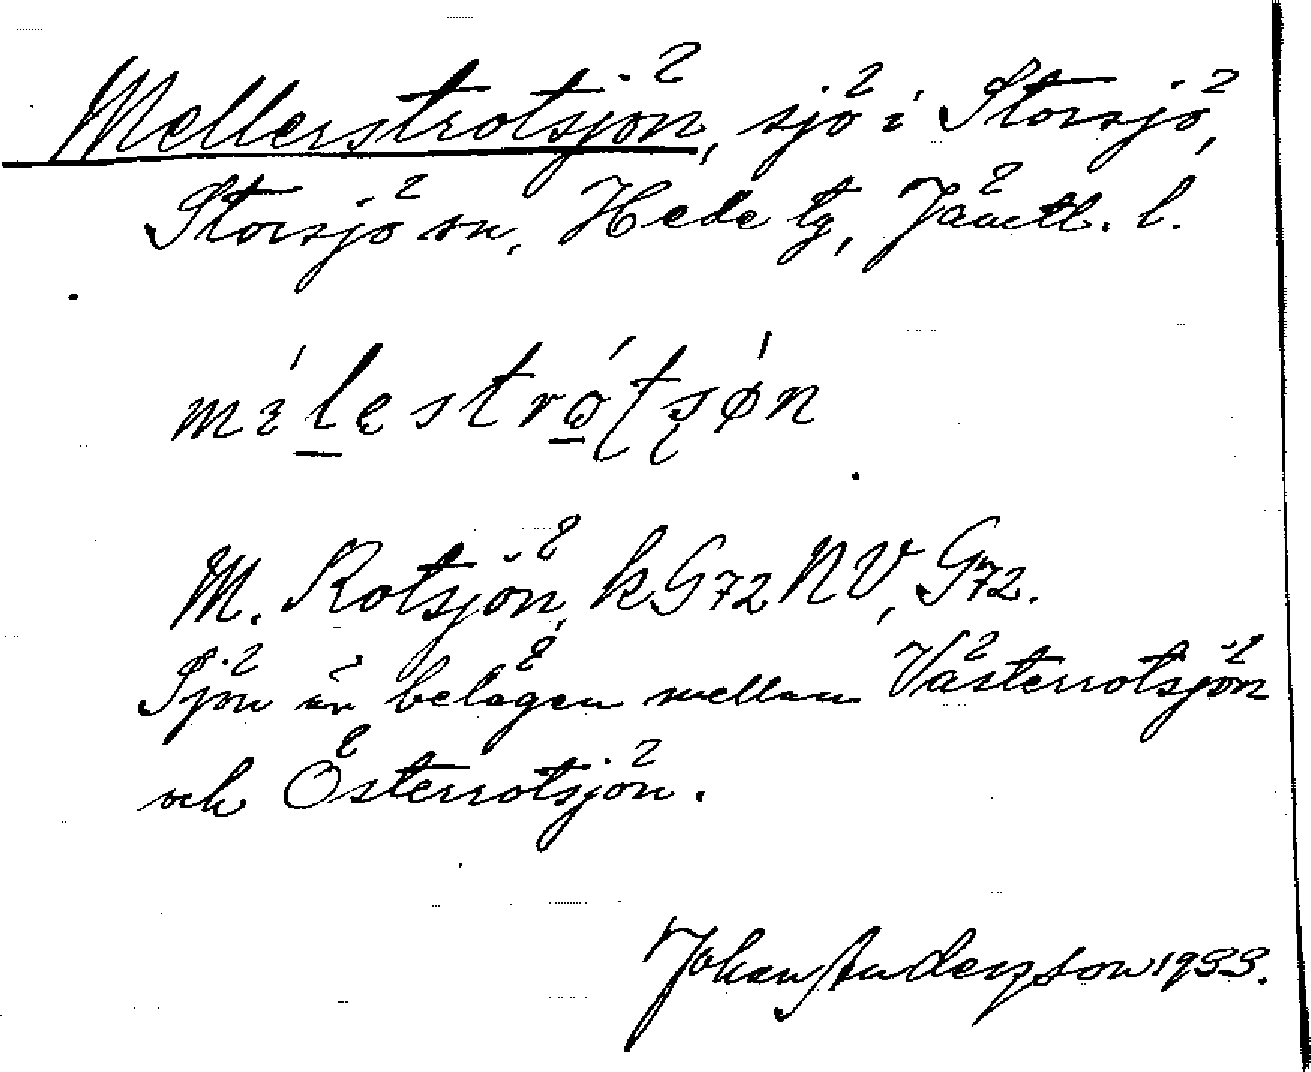 Mellerstrotsjön, sjö i Storsjö,
Storsjö sn, Hede tg, Jämtl. l.
M. Rotsjön, kG72NV, G72.
Sjön är belägen mellan Västerrotsjön
och Österrotsjön.
Johan Anderzson 1933.